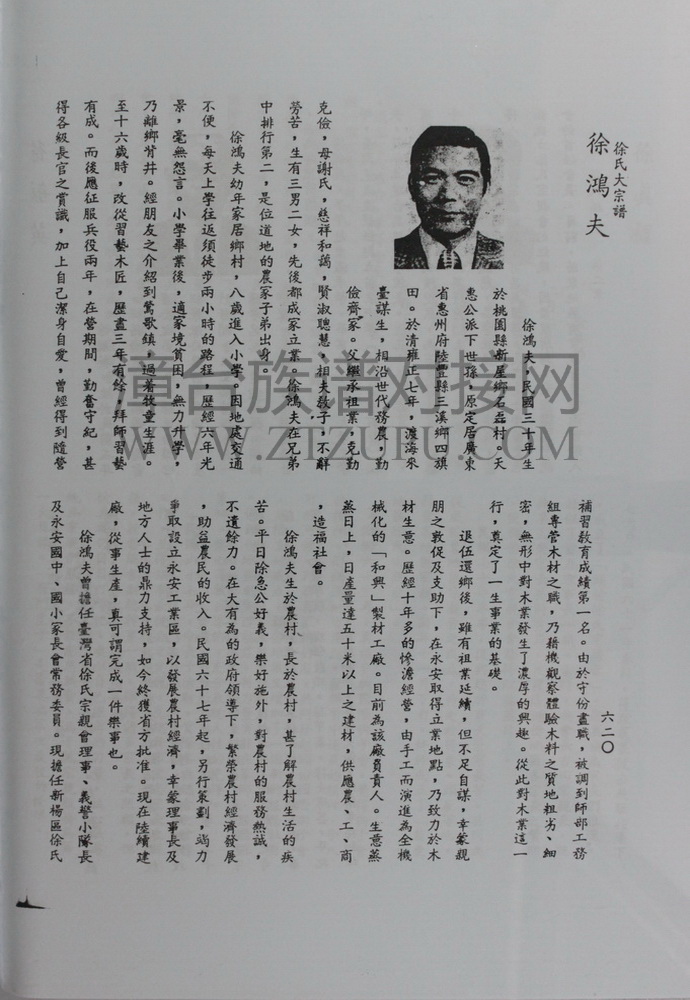 徐氏大宗譜
徐鴻夫
徐鴻夫，民國三十年生
於桃園縣新屋鄉石磊村。天
惠公派下世孫，原定居廣東
省惠州府陸豐縣三溪鄉四旗
田。於清雍正七年，渡海來
臺謀生，相沿世代務農，勤
儉齊家。父繼承祖業，克勤
克儉，母謝氏，慈祥和藹，賢淑聰慧，相夫教子，不辭
勞苦，生有三男二女，先後都成家立業。徐鴻夫在兄弟
中排行第二，是位道地的農家子弟出身。
徐鴻夫幼年家居鄉村，八歲進入小學。因地處交通
不便，每天上學往返須徒步兩小時的路程，歷經六年光
景，毫無怨言。小學畢業後，適家境貧困，無力升學，
乃離鄉背井。經朋友之介紹到鶯歌鎮，過着牧童生涯。
至十六歲時，改從習藝木匠，歷盡三年有餘，拜師習藝
有成。而後應征服兵役兩年，在營期間，勤奮守紀，甚
得各級長官之賞識，加上自己潔身自愛，曾經得到隨營
六二〇
補習教育成績第一名。由於守份盡職，被調到師部工務
組專管木材之職，乃藉機觀察體驗木料之質地粗劣、細
密，無形中對木業發生了濃厚的興趣。從此對木業這一
行，奠定了一生事業的基礎。
退伍還鄉後，雖有祖業延續，但不足自謀，幸蒙親
朋之敦促及支助下，在永安取得立業地點，乃致力於木
材生意。歷經十年多的慘澹經營，由手工而演進為全機
械化的「和興」製材工廠。目前為該廠負責人。生意蒸
蒸日上，日產量達五十米以上之建材，供應農、工、商
，造福社會。
徐鴻夫生於農村，長於農村，甚了解農村生活的疾
苦。平日除急公好義，樂好施外，對農村的服務熱誠，
不遺餘力。在大有為的政府領導下，繁榮農村經濟發展
，助益農民的收入。民國六十七年起，另行策劃，竭力
爭取設立永安工業區，以發展農村經濟，幸蒙理事長及
地方人士的鼎力支持，如今終獲省方批准。現在陸續建
廠，從事生產，真可謂完成一件樂事也。
徐鴻夫曾擔任臺灣省徐氏宗親會理事、義警小隊長
及永安國中、國小家長會常務委員。現擔任新楊區徐氏
童台族谱对接网
WWW.ZTZUPU.COM